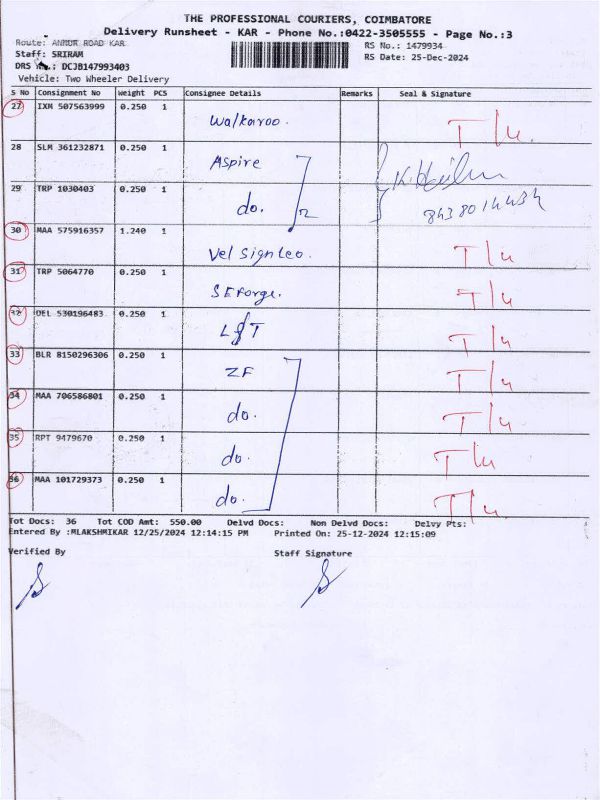 THE PROFESSIONAL COURIERS, COIMBATORE
Delivery Runsheet - KAR - Phone No.:0422-3505555 - Page No.:3
Route: ANNUR ROAD KAR
RS No.: 1479934
Staff: SRIRAM
RS Date: 25-Dec-2024
DRS No.: DCJB147993403
Vehicle: Two Wheeler Delivery
S No Consignment No Weight PCS Consignee Details Remarks Seal & Signature
27 IXM 507563999 0.250 1 Walkaroo. T/u
28 SLM 361232871 0.250 1 Aspire
29 TRP 1030403 0.250 1 do.
30 MAA 575916357 1.240 1 T/u
31 TRP 5064770 0.250 1 SEForge. T/u
32 DEL 530196483 0.250 1 L&T T/u
33 BLR 8150296306 0.250 1 ZF T/u
34 MAA 706586801 0.250 1 do. T/u
35 RPT 9479670 0.250 1 do. T/u
36 MAA 101729373 0.250 1 do. T/u
Tot Docs: 36 Tot COD Amt: 550.00 Delvd Docs: Non Delvd Docs: Delvy Pts:
Entered By :MLAKSHMIKAR 12/25/2024 12:14:15 PM Printed On: 25-12-2024 12:15:09
Verified By Staff Signature